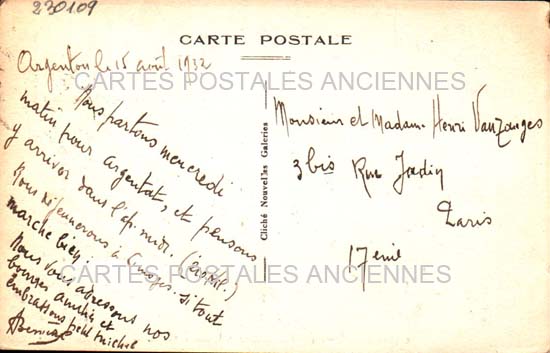 230109
CARTE POSTALE
Argenton le 15 août 1932
CARTES POSTALES ANCIENNES
Nous partons mercredi
matin pour Argentat, et pensons
y arriver dans l'ap. midi.
Nous déjeunerons à si tout
marche bien.
Nous vous adressons nos
bonnes amitiés et
embrassons petit Michel
Cliché Nouvelles Galeries
Monsieur et Madame Henri Vauzanges
3 bis Rue Jadin
Paris
17eme
CARTES POSTALES ANCIENNES